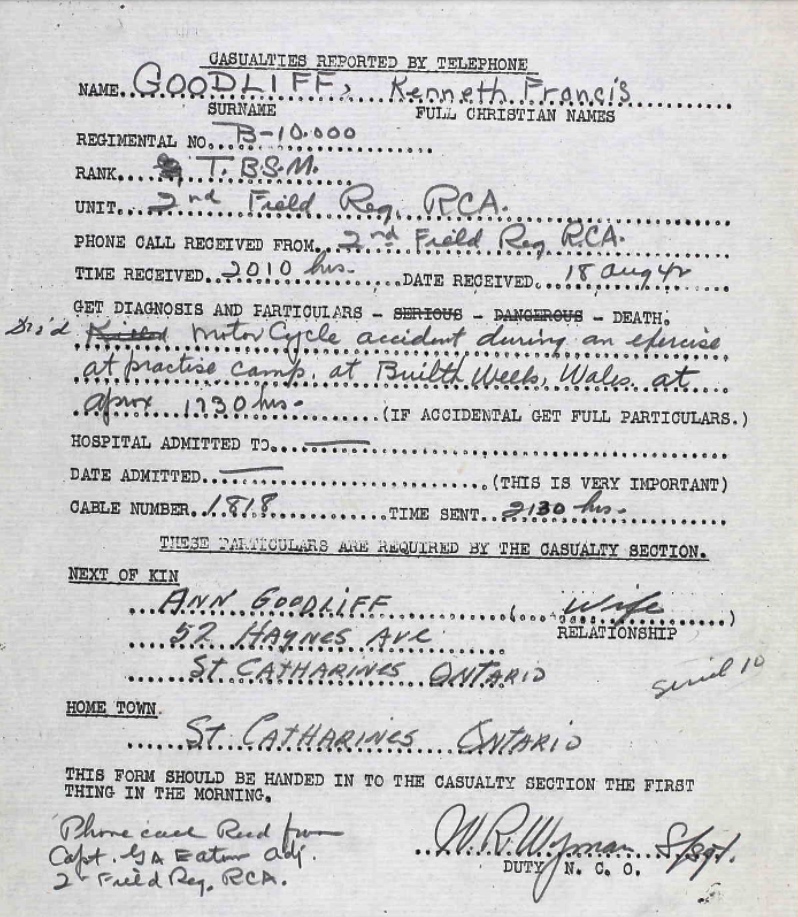 CASUALTIES REPORTED BY TELEPHONE
NAME..GOODLIFF, Kenneth Francis
SURNAME FULL CHRISTIAN NAMES
REGIMENTAL NO. B-10.000
RANK.... T.B.S.M.
UNIT. 2nd Field Reg. RCA.
PHONE CALL RECEIVED FROM 2nd Field Reg RCA.
TIME RECEIVED 2010 hrs. DATE RECEIVED 18 Aug 42
GET DIAGNOSIS AND PARTICULARS - SERIOUS - DANGEROUS - DEATH.
Killed Motor Cycle accident during an exercise
at practise camp. at Builth Wells, Wales. at
aprox 1730 hrs. (IF ACCIDENTAL GET FULL PARTICULARS.)
HOSPITAL ADMITTED TO
DATE ADMITTED (THIS IS VERY IMPORTANT)
CABLE NUMBER 1818 TIME SENT 2130 hrs.
THESE PARTICULARS ARE REQUIRED BY THE CASUALTY SECTION.
NEXT OF KIN
ANN GOODLIFF ( wife )
52 HAYNES AVE RELATIONSHIP
ST CATHARINES ONTARIO
HOME TOWN
ST CATHARINES ONTARIO
THIS FORM SHOULD BE HANDED IN TO THE CASUALTY SECTION THE FIRST
THING IN THE MORNING.
Phone call Recd from
Capt. GA Eaton adj.
2nd Field Reg. RCA.
W.R. Wyman S/Sgt.
DUTY N. C. O.